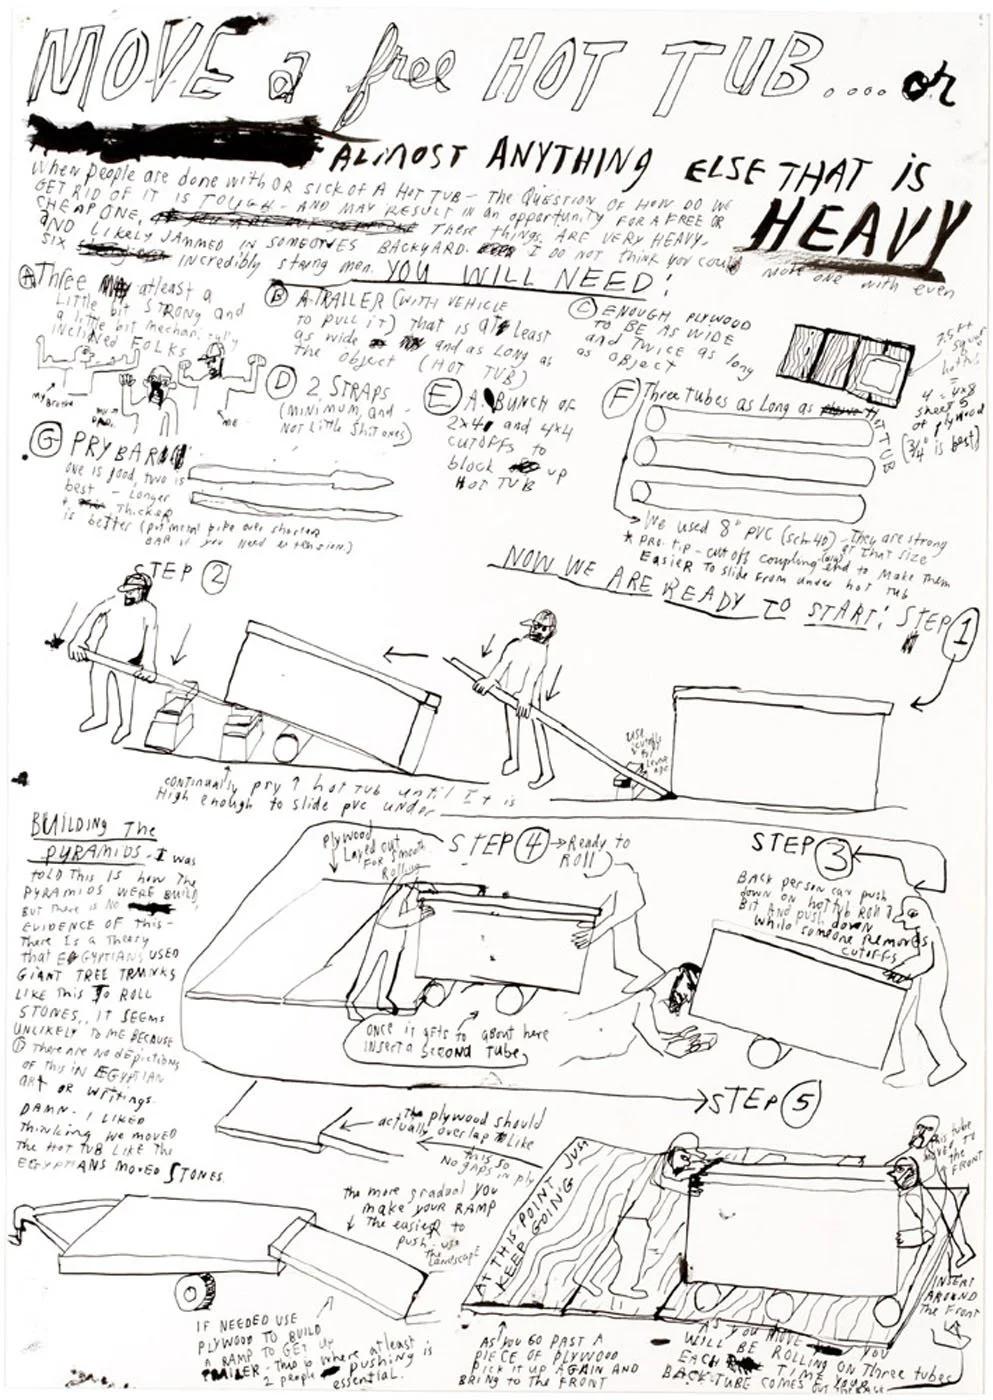 MOVE a free HOT TUB.... or
ALMOST ANYTHING ELSE THAT IS
HEAVY
When people are done with OR SICK OF A HOT TUB - THE QUESTION OF HOW DO WE
GET RID OF IT IS TOUGH - AND MAY RESULT IN an opportunity FOR A FREE OR
CHEAP ONE, These things ARE VERY HEAVY,
AND LIKELY JAMMED IN SOMEONES BACKYARD. I DO NOT THINK YOU could move one with even
SIX incredibly strong men.
YOU WILL NEED:
A Three atleast a
Little bit STRONG and
a little bit mechanically
inclined FOLKS
my Brother
my DAD
me
B A TRAILER (WITH VEHICLE
TO PULL IT) THAT IS AT Least
as wide and as LONG as
The object (HOT TUB)
C ENOUGH PLYWOOD
TO BE AS WIDE
and TWICE as long
as object
7.5 ft
square
hot tub
=
4 - 4x8
sheets
of plywood
(3/4" is best)
D 2 STRAPS
(MINIMUM, and -
NOT LITTLE SHIT ONES)
E A BUNCH OF
2x4 and 4x4
CUTOFFS to
block up
HOT TUB
F Three tubes as Long as
HOT TUB
We used 8" PVC (sch-40) - They are strong
at that size
* PRO-TIP - cut off coupling end to make them
Easier To slide from under hot tub
G PRYBAR
one is good, two is
best - Longer
+ Thicker
is better (put metal pipe over shorter
BAR if you need extension.)
NOW WE ARE READY TO START! STEP 1
USE cutoffs for leverage
STEP 2
CONTINUALLY pry ↑ hot TUB until It is
High enough to slide pvc under
STEP 3
BACK person can push
down on hot tub ROLL
BIT AND push down
while someone removes
cutoffs
STEP 4 → Ready to
ROLL
plywood
Layed out
FOR smooth
Rolling
ONCE it gets to about here
INSERT a SECOND TUBE
BUILDING The
PYRAMIDS - I was
TOLD THIS IS how The
PYRAMIDS WERE BUILD,
BUT There is NO
EVIDENCE OF this -
There Is a Theory
that EGYPTIANS USED
GIANT TREE TRUNKS
LIKE This TO ROLL
STONES., IT SEEMS
UNLIKELY TO ME BECAUSE
① There are No depictions
of this IN EGYPTIAN
art OR writings.
DAMN. I LIKED
Thinking we moved
The HOT TUB LIKE The
EGYPTIANS MOVED STONES.
STEP 5
The plywood should
actually overlap Like
this SO
NO gaps in ply
the more gradual you
make YOUR RAMP
The easier to
push: use
the Landscape
IF NEEDED USE
PLYWOOD TO BUILD
A RAMP TO GET UP
TRAILER - This is where atleast
2 people pushing is
essential.
AT THIS POINT JUST
KEEP GOING
this tube
MOVED TO
the
FRONT
INSERT
AROUND
The Front
AS YOU GO PAST A
PIECE OF PLYWOOD
PICK IT UP AGAIN AND
BRING TO THE FRONT
AS YOU MOVE YOU
WILL BE ROLLING ON Three tubes
EACH TIME YOUR
BACK TUBE COMES